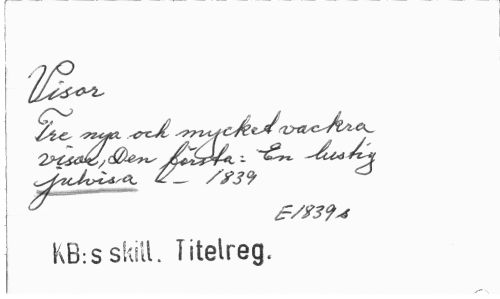 Visor
Tre nya och mycket vackra
visor, Den första: En lustig
julvisa — 1839
E1839s
KB:s skill. Titelreg.